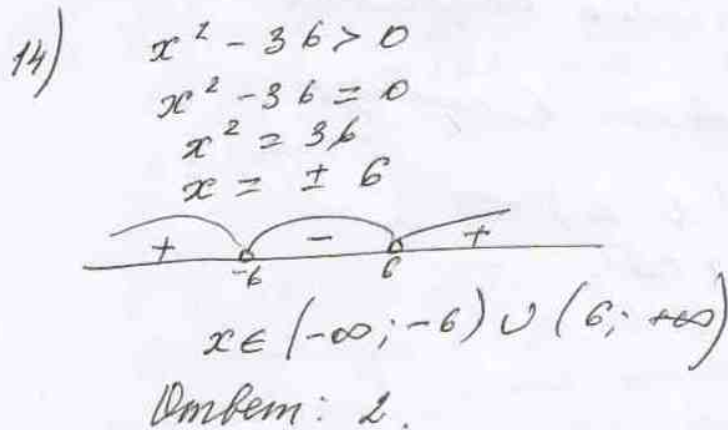 14) x² - 36 > 0
x² - 36 = 0
x² = 36
x = ± 6
+ - +
-6 6
x ∈ (-∞; -6) ∪ (6; +∞)
Ответ: 2.